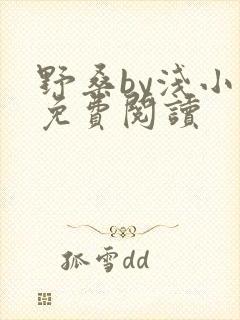 野桑by淺小
免費閱讀
孤雪dd